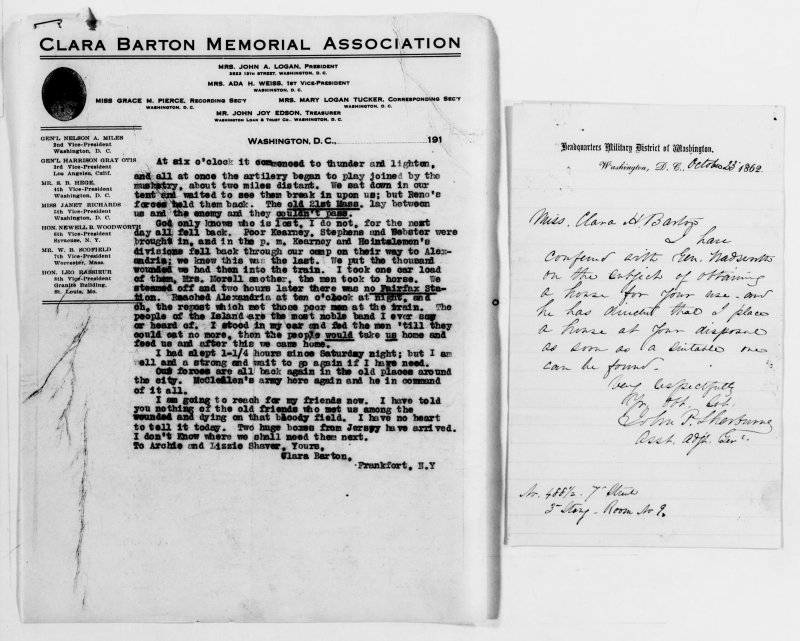 CLARA BARTON MEMORIAL ASSOCIATION
MRS. JOHN A. LOGAN, PRESIDENT
WASHINGTON, D. C.
MRS. ADA H. WEISS, 1ST VICE-PRESIDENT
WASHINGTON, D. C.
MISS GRACE M. PIERCE, RECORDING SEC'Y
WASHINGTON, D. C.
MRS. MARY LOGAN TUCKER, CORRESPONDING SEC'Y
WASHINGTON, D. C.
MR. JOHN JOY EDSON, TREASURER
WASHINGTON LOAN & TRUST CO., WASHINGTON, D. C.
WASHINGTON, D. C., 191
GEN'L NELSON A. MILES
2nd Vice-President
Washington, D. C.
GEN'L HARRISON GRAY OTIS
3rd Vice-President
Los Angeles, Calif.
MR. S. B. HEGE,
4th Vice-President
Washington, D. C.
MISS JANET RICHARDS
5th Vice-President
Washington, D. C.
HON. NEWELL B. WOODWORTH
6th Vice-President
Syracuse, N. Y.
MR. W. B. SCOFIELD
7th Vice-President
Worcester, Mass.
HON. LEO RASSIEUR
8th Vice-President
Granite Building,
St. Louis, Mo.
At six o'clock it commenced to thunder and lighten,
and all at once the artillery began to play joined by the
musketry, about two miles distant. We sat down in our
tent and waited to see them break in upon us; but Reno's
forces held them back. The old 21st Mass. lay between
us and the enemy and they couldn't pass.
God only knows who is lost, I do not, for the next
day all fell back. Poor Kearney, Stephens and Webster were
brought in, and in the p. m. Kearney and Heintzlemon's
divisions fell back through our camp on their way to Alex-
andria; we knew this was the last. We put the thousand
wounded we had then into the train. I took one car load
of them, Mrs. Morell another, the men took to horse. We
steamed off and two hours later there was no Fairfax Sta-
tion. Reached Alexandria at ten o'clock at night, and
oh, the repast which met those poor men at the train. The
people of the Island are the most noble band I ever saw
or heard of. I stood in my car and fed the men 'till they
could eat no more, then the people would take us home and
feed us and after this we came home.
I had slept 1-1/4 hours since Saturday night; but I am
well and a strong and wait to go again if I have need.
Our forces are all back again in the old places around
the city. McClellen's army here again and he in command
of it all.
I am going to reach for my friends now. I have told
you nothing of the old friends who met us among the
wounded and dying on that bloody field. I have no heart
to tell it today. Two huge boxes from Jersey have arrived.
I don't Know where we shall need them next.
To Archie and Lizzie Shaver, Yours,
Clara Barton.
Frankfort, N.Y
Headquarters Military District of Washington,
Washington, D. C., October 25 1862
Miss. Clara H. Barton
I have
confered with Gen. Wadsworth
on the subject of obtaining
a house for your use - and
he has directed that I place
a house at your disposal
as soon as a suitable one
can be found.
Very respectfully
Yr. Obt. Svt.
John P. Sherburne
Asst. Adjt. Genl.
No. 488½ - 7th Street
3rd Story - Room No 9.